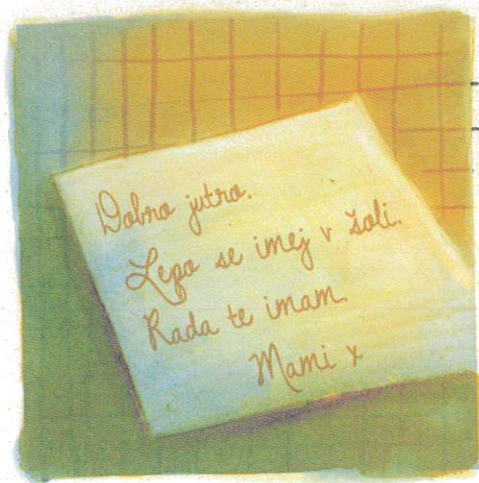 Dobro jutro.
Lepo se imej v šoli.
Rada te imam.
Mami x